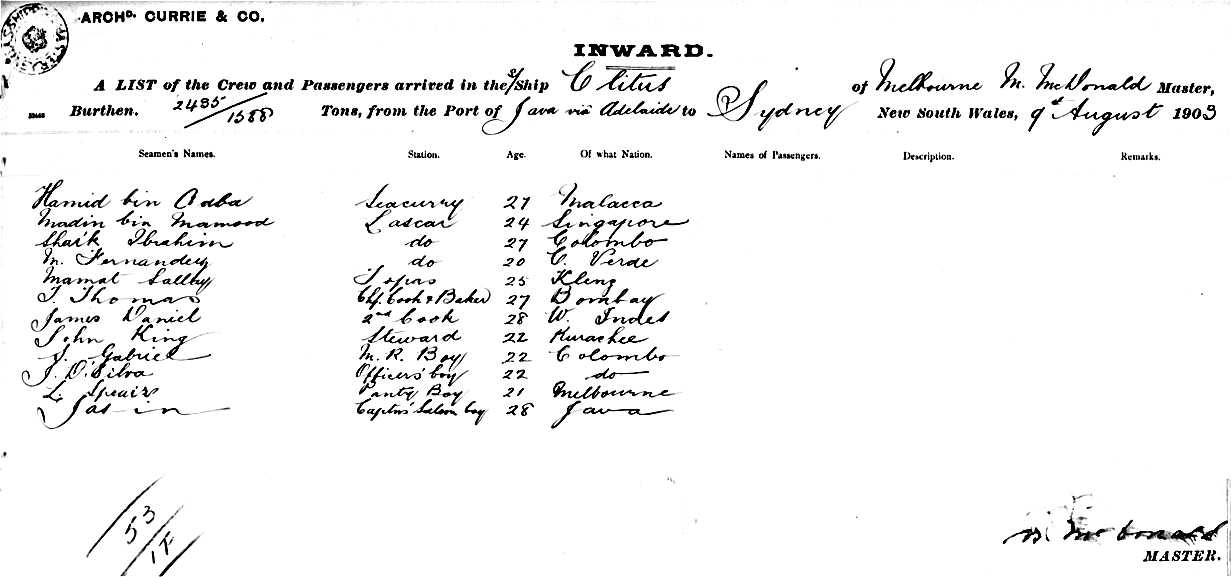 ARCHD. CURRIE & CO.
INWARD.
A LIST of the Crew and Passengers arrived in the S/Ship Clitus of Melbourne M. McDonald Master,
Burthen. 2435/1588 Tons, from the Port of Java via Adelaide to Sydney New South Wales, 9th August 1903
Seamen's Names. Station. Age. Of what Nation. Names of Passengers. Description. Remarks.
Hamid bin Adba Seacurry 27 Malacca
Madin bin Mamood Lascar 24 Singapore
Shaik Ibrahim do 27 Colombo
M. Fernandez do 20 C. Verde
Mamat Salley Topas 25 Kling
T. Thomas Chf. Cook & Baker 27 Bombay
James Daniel 2nd Cook 28 W. Indes
John King Steward 22 Kurachee
J. Gabriel M. R. Boy 22 Colombo
J. D. Silva Officers' boy 22 do
L. Pantry Boy 21 Melbourne
Jas-in Captns' Saloon boy 28 Java
53
1F
M. McDonald
MASTER.